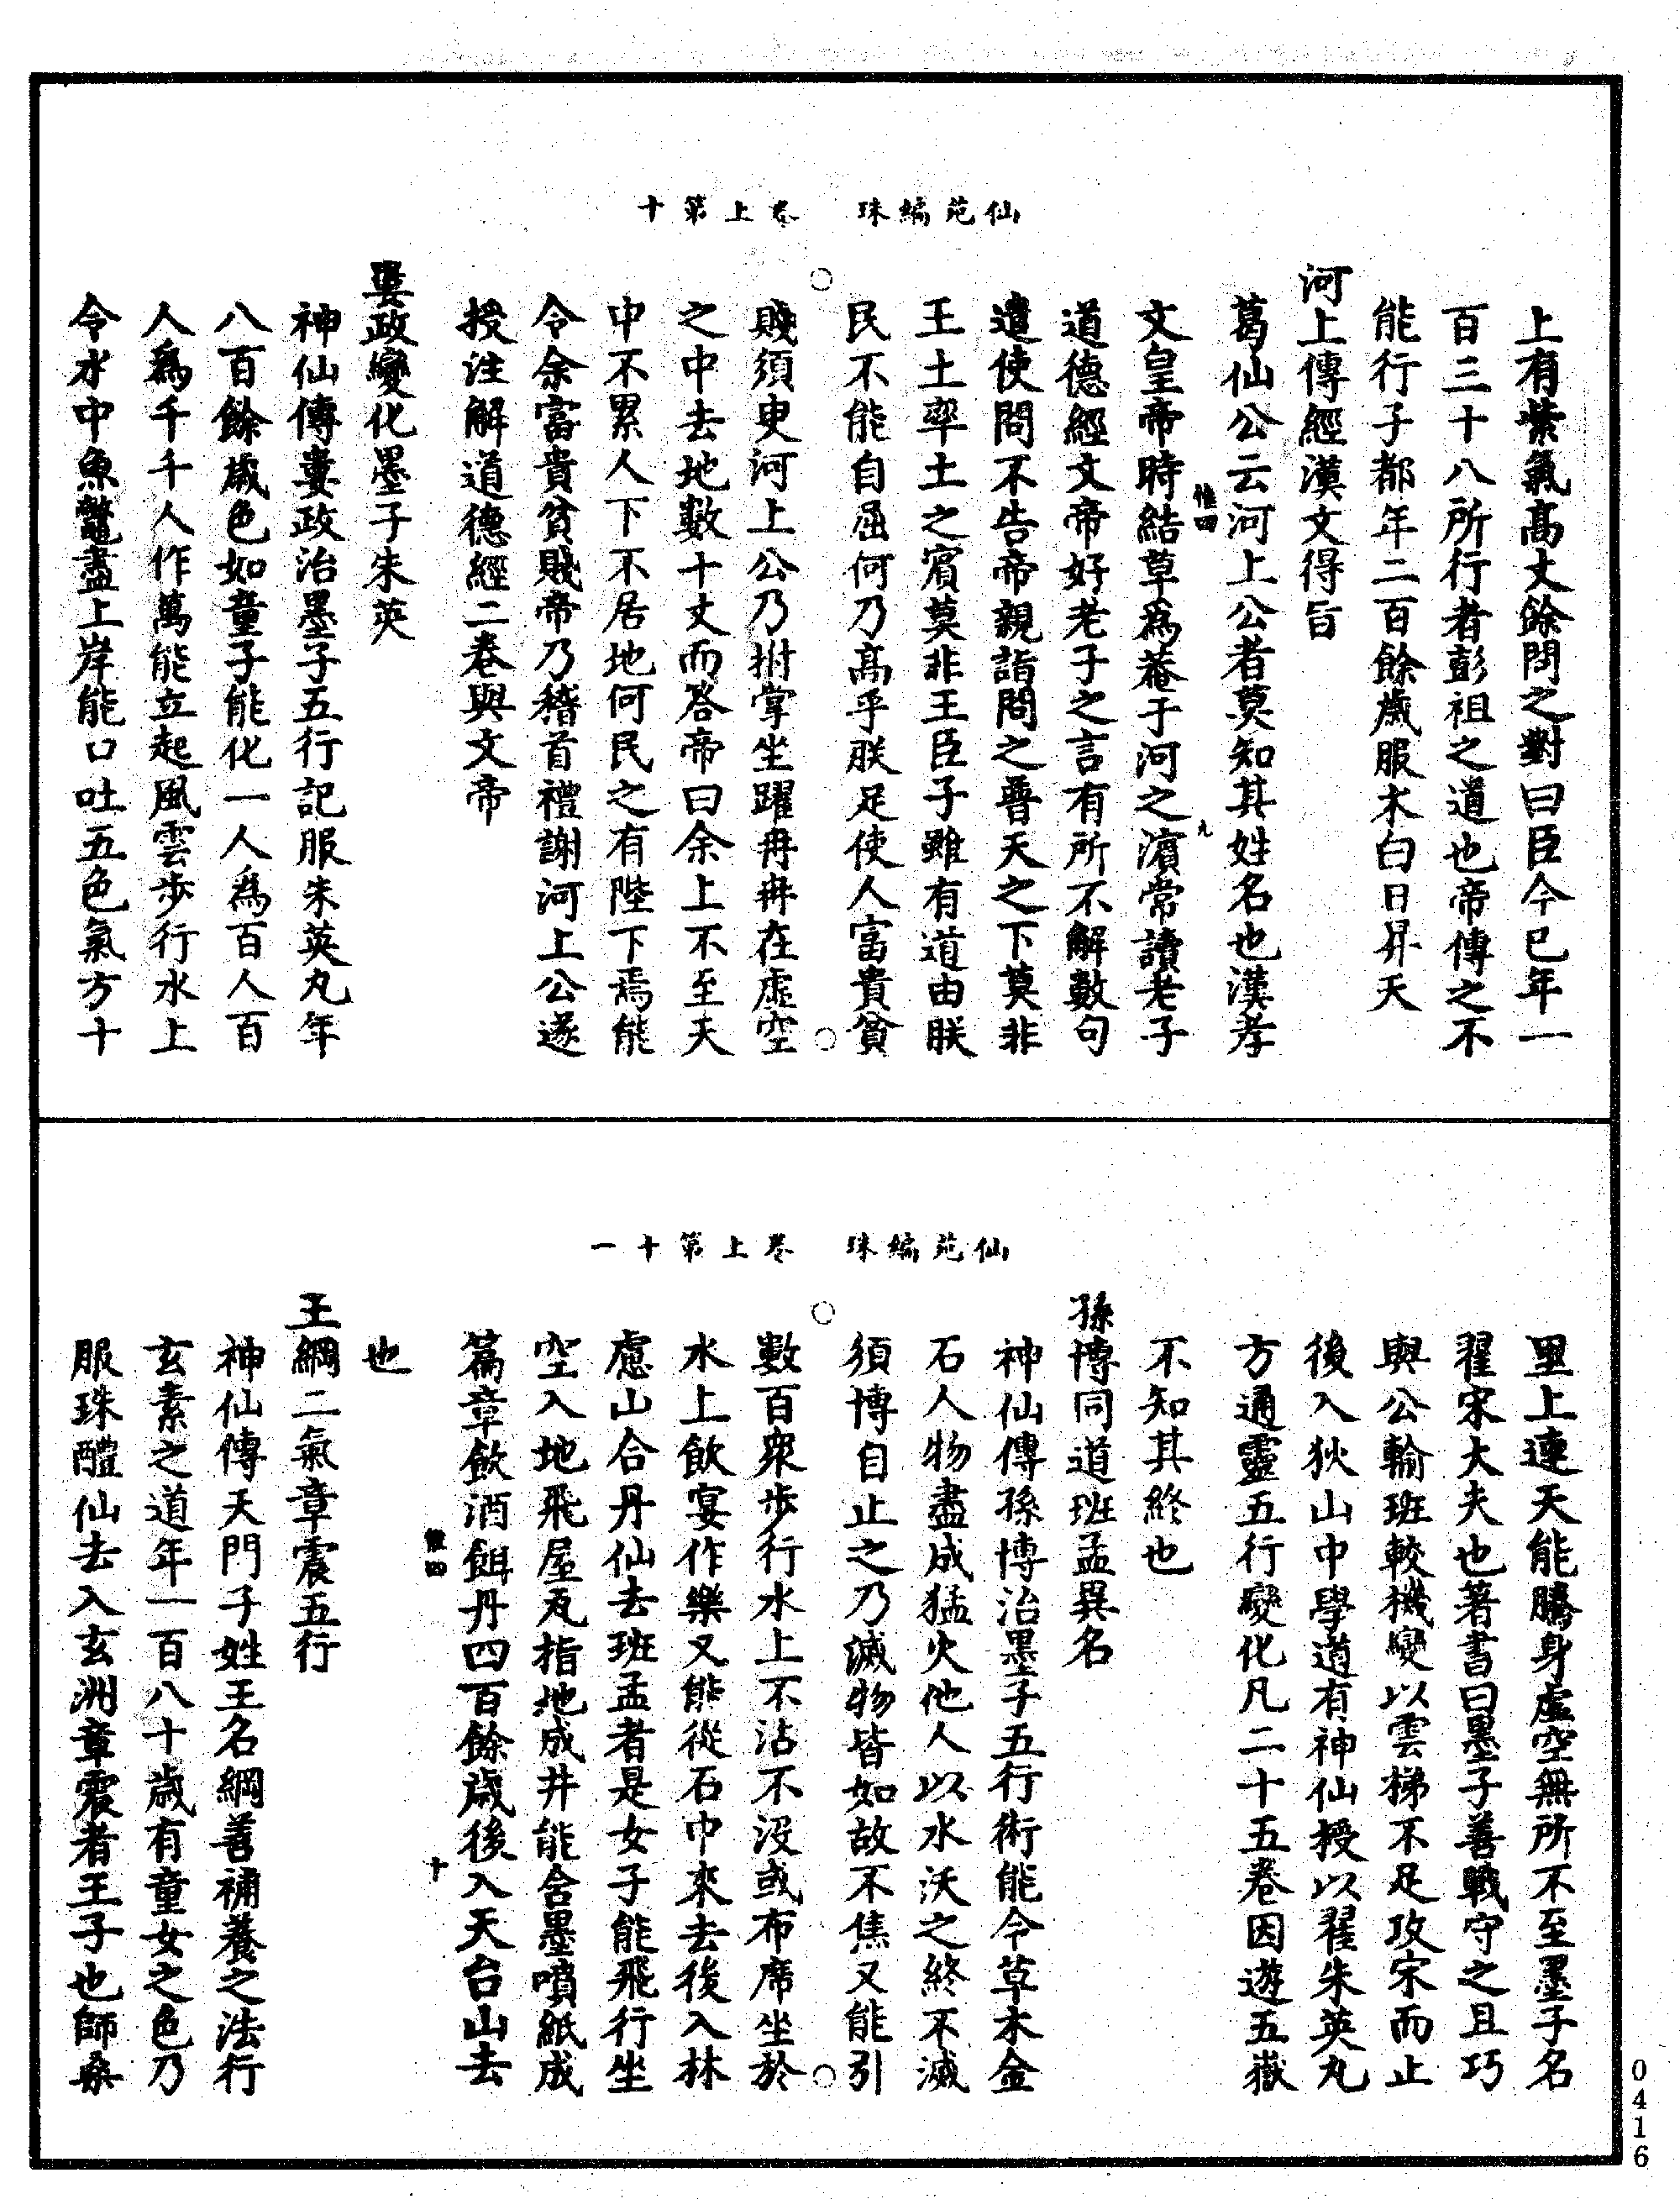 仙苑編珠　卷上第十
上有紫氣高丈餘問之對曰臣今已年一
百三十八所行者彭祖之道也帝傳之不
能行子都年二百餘歲服朮白日昇天
河上傳經漢文得旨
葛仙公云河上公者莫知其姓名也漢孝
惟四
九
文皇帝時結草爲菴于河之濱常讀老子
道德經文帝好老子之言有所不解數句
遣使問不告帝親詣問之普天之下莫非
王土率土之賓莫非王臣子雖有道由朕
民不能自屈何乃高乎朕足使人富貴貧
賤須臾河上公乃拊掌坐躍冉冉在虛空
之中去地數十丈而答帝曰余上不至天
中不累人下不居地何民之有陛下焉能
令余富貴貧賤帝乃稽首禮謝河上公遂
授注解道德經二卷與文帝
婁政變化墨子朱英
神仙傳婁政治墨子五行記服朱英丸年
八百餘歲色如童子能化一人爲百人百
人爲千千人作萬能立起風雲步行水上
令水中魚鼈盡上岸能口吐五色氣方十
仙苑編珠　卷上第十一
里上連天能騰身虛空無所不至墨子名
翟宋大夫也著書曰墨子善戰守之且巧
與公輸班較機變以雲梯不足攻宋而止
後入狄山中學道有神仙授以翟朱英丸
方通靈五行變化凡二十五卷因遊五嶽
不知其終也
孫博同道班孟異名
神仙傳孫博治墨子五行術能令草木金
石人物盡成猛火他人以水沃之終不滅
須博自止之乃滅物皆如故不焦又能引
數百衆步行水上不沾不没或布席坐於
水上飲宴作樂又能從石中來去後入林
慮山合丹仙去班孟者是女子能飛行坐
空入地飛屋瓦指地成井能含墨噴紙成
篇章飲酒餌丹四百餘歲後入天台山去
惟四
十
也
王綱二氣章震五行
神仙傳天門子姓王名綱善補養之法行
玄素之道年一百八十歲有童女之色乃
服珠醴仙去入玄洲章震者王子也師桑
0416